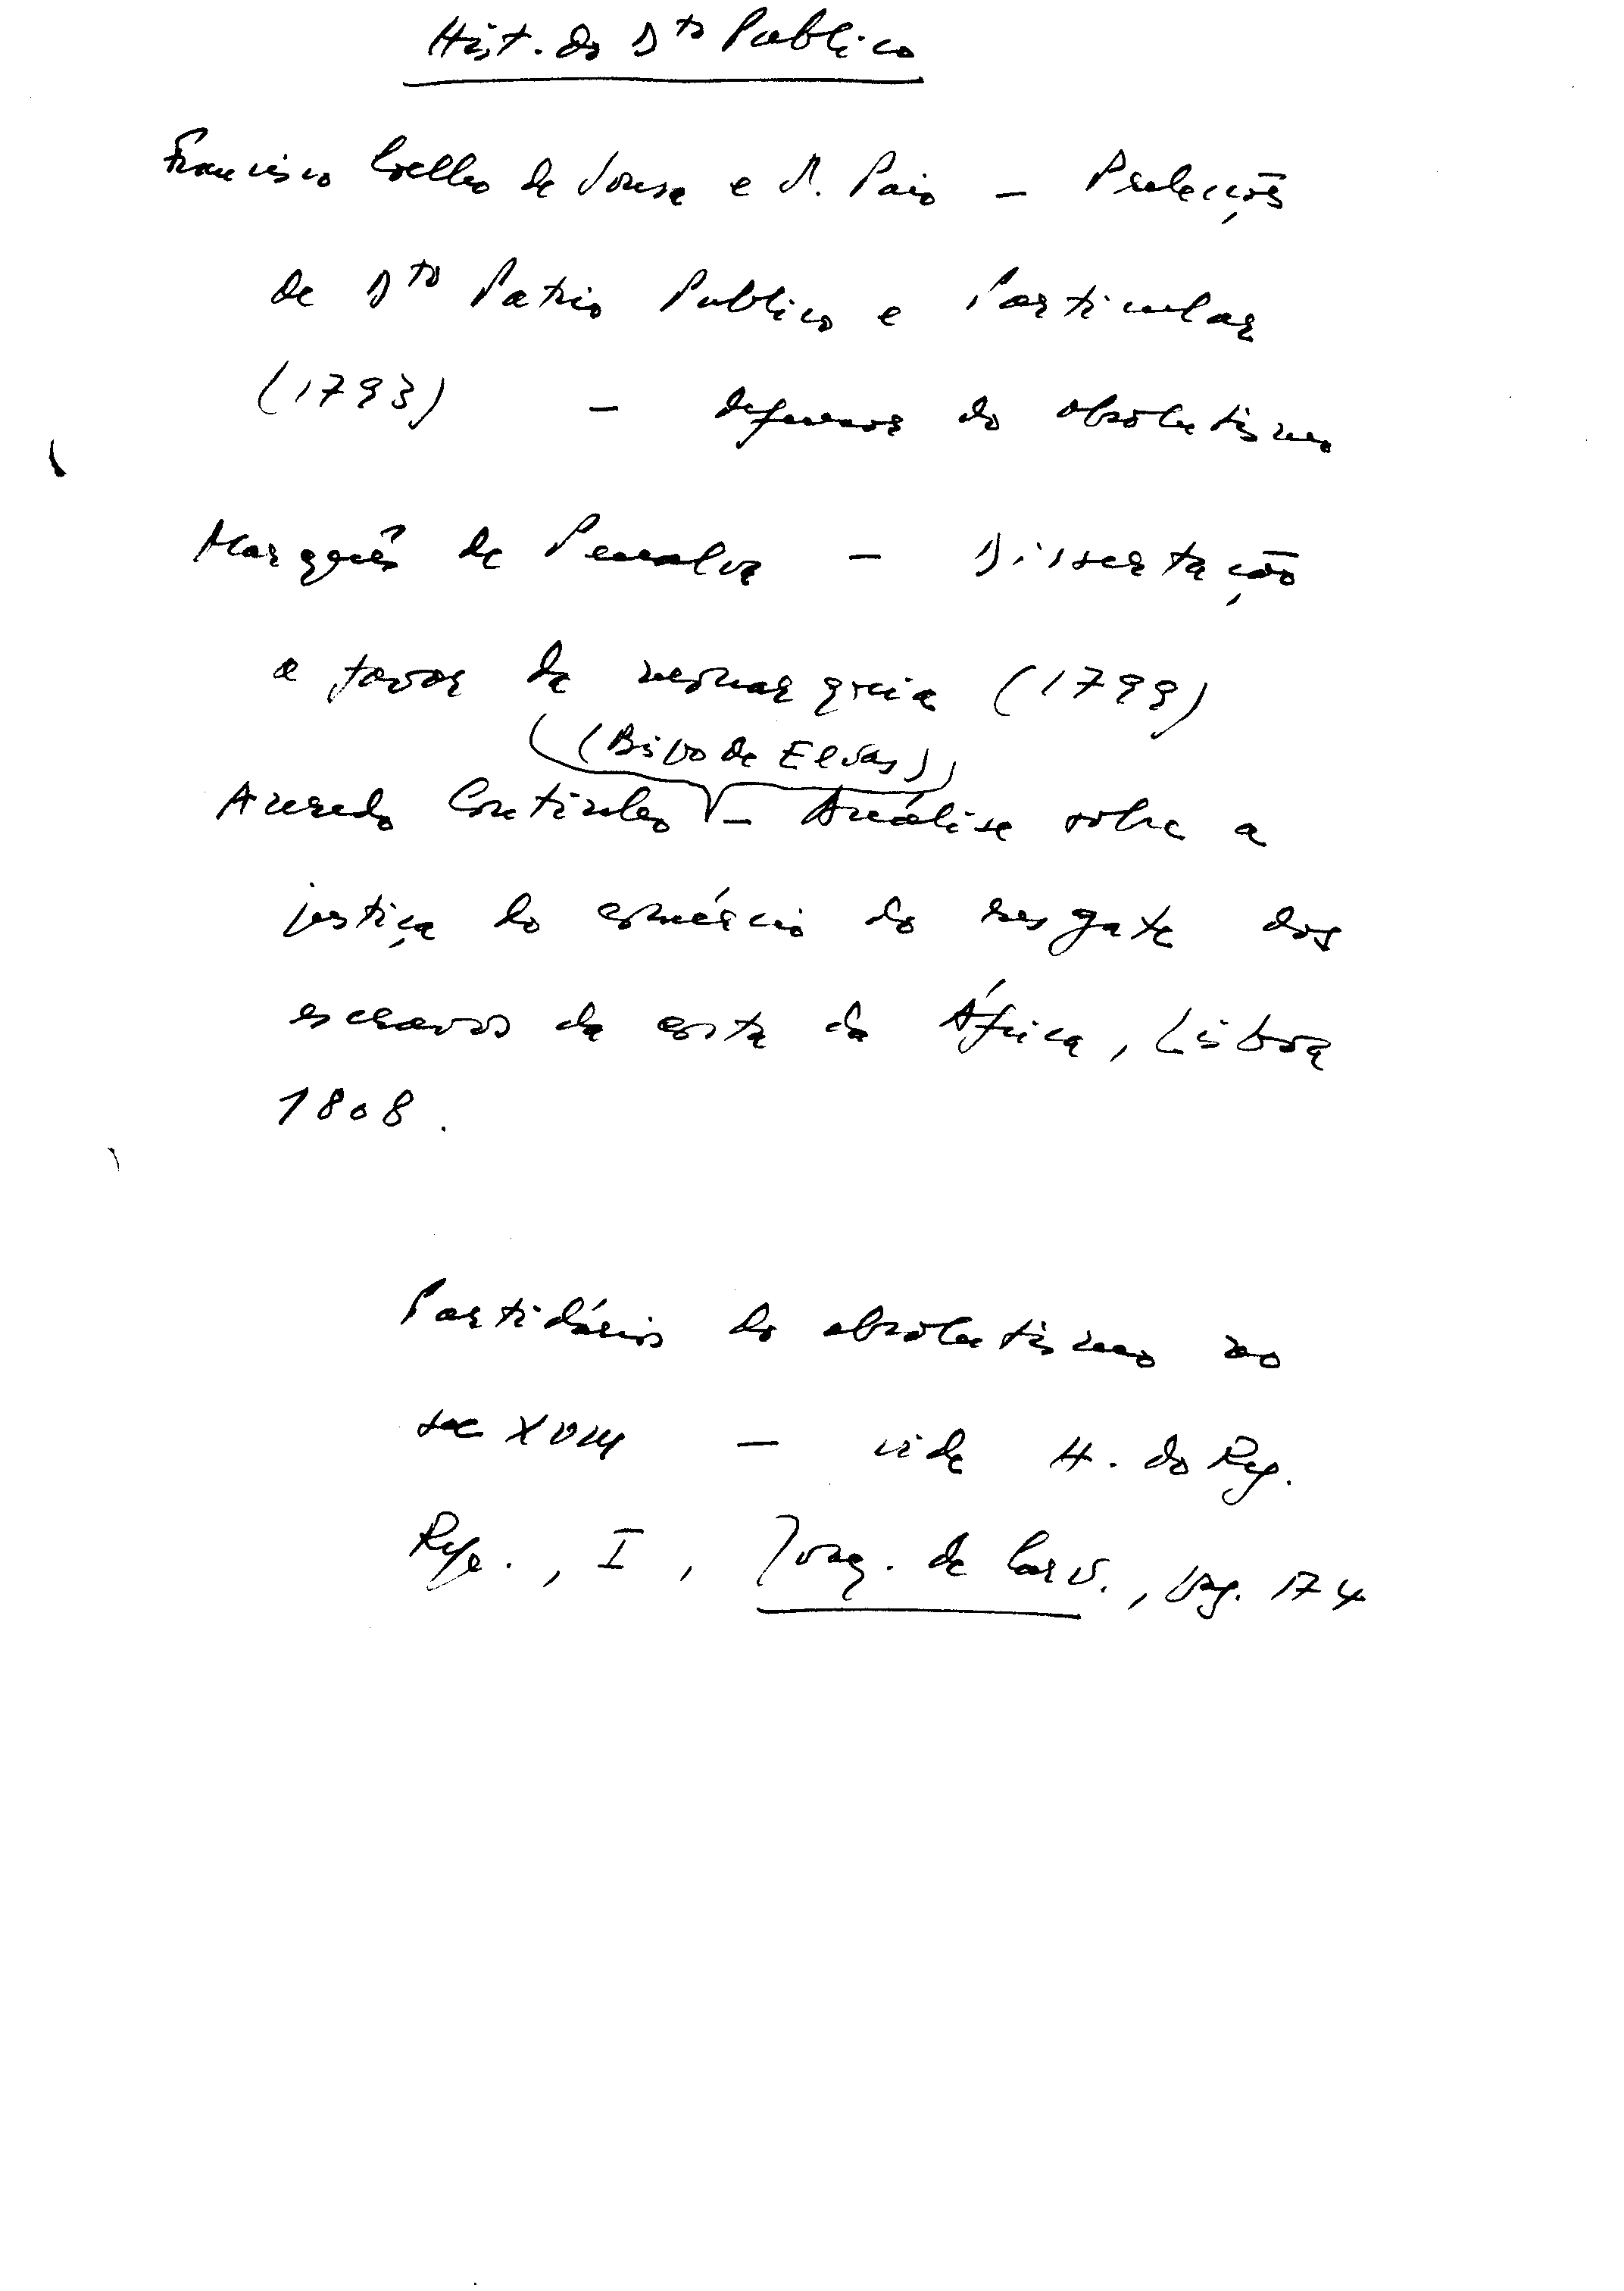 Hist. do Dto Publico
Francisco Coelho de Sousa e S. Paio – Prelecções
de Dto Patrio Publico e Particular
(1793) – defensor do absolutismo
Marquês de Penalva – Dissertação
a favor da monarquia (1799)
(Bispo de Elvas)
Azeredo Coutinho – Análise sobre a
justiça do comércio do resgate dos
escravos da costa da África, Lisboa
1808.
Partidários do absolutismo no
sec XVIII – vide H. do Reg.
Rep., I, Joaq. de Carv., pag. 174